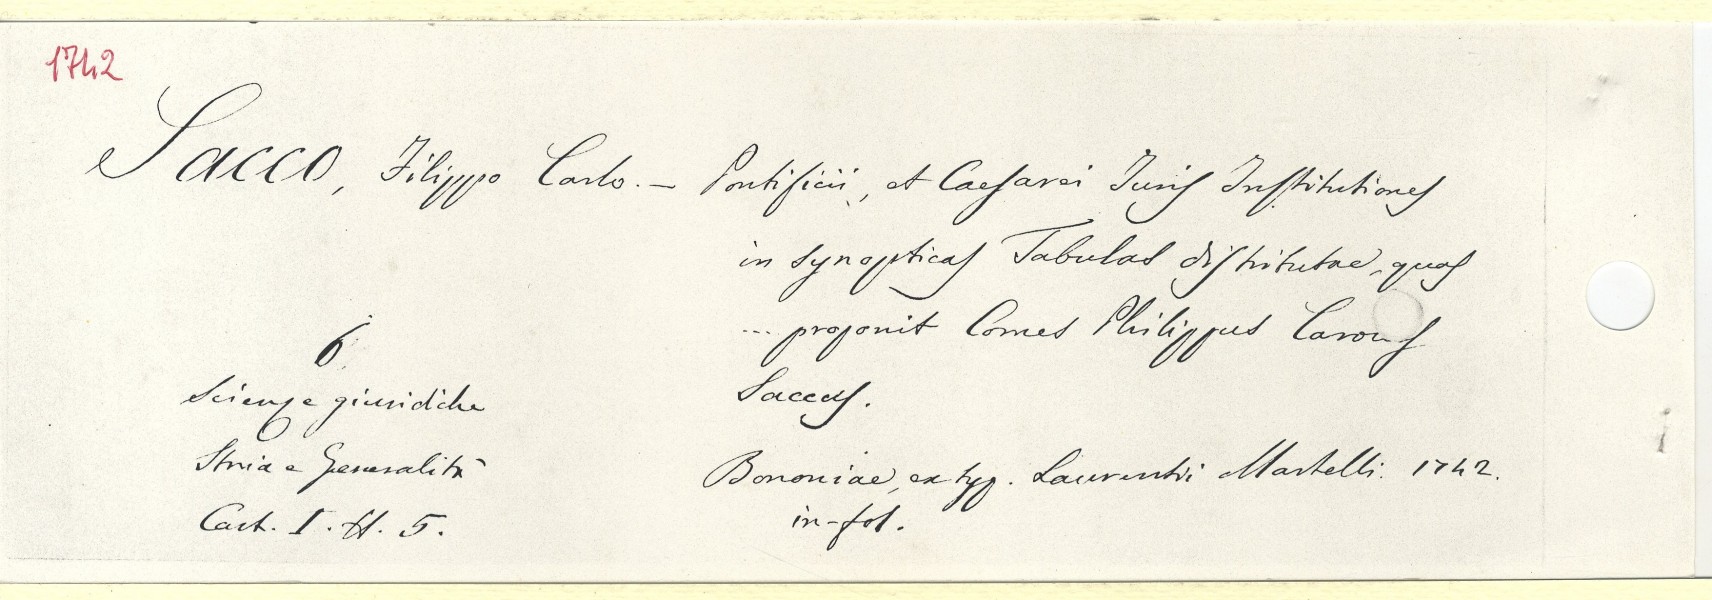 1742
Sacco, Filippo Carlo. — Pontificii, et Caesarei Juris Institutiones
in synopticas Tabulas distributae, quas
... proponit Comes Philippus Carolus
Saccus.
6
Scienze giuridiche
Storia e Generalità
Cart. I. H. 5.
Bononiae, ex typ. Laurentii Martelli. 1742.
in-fol.